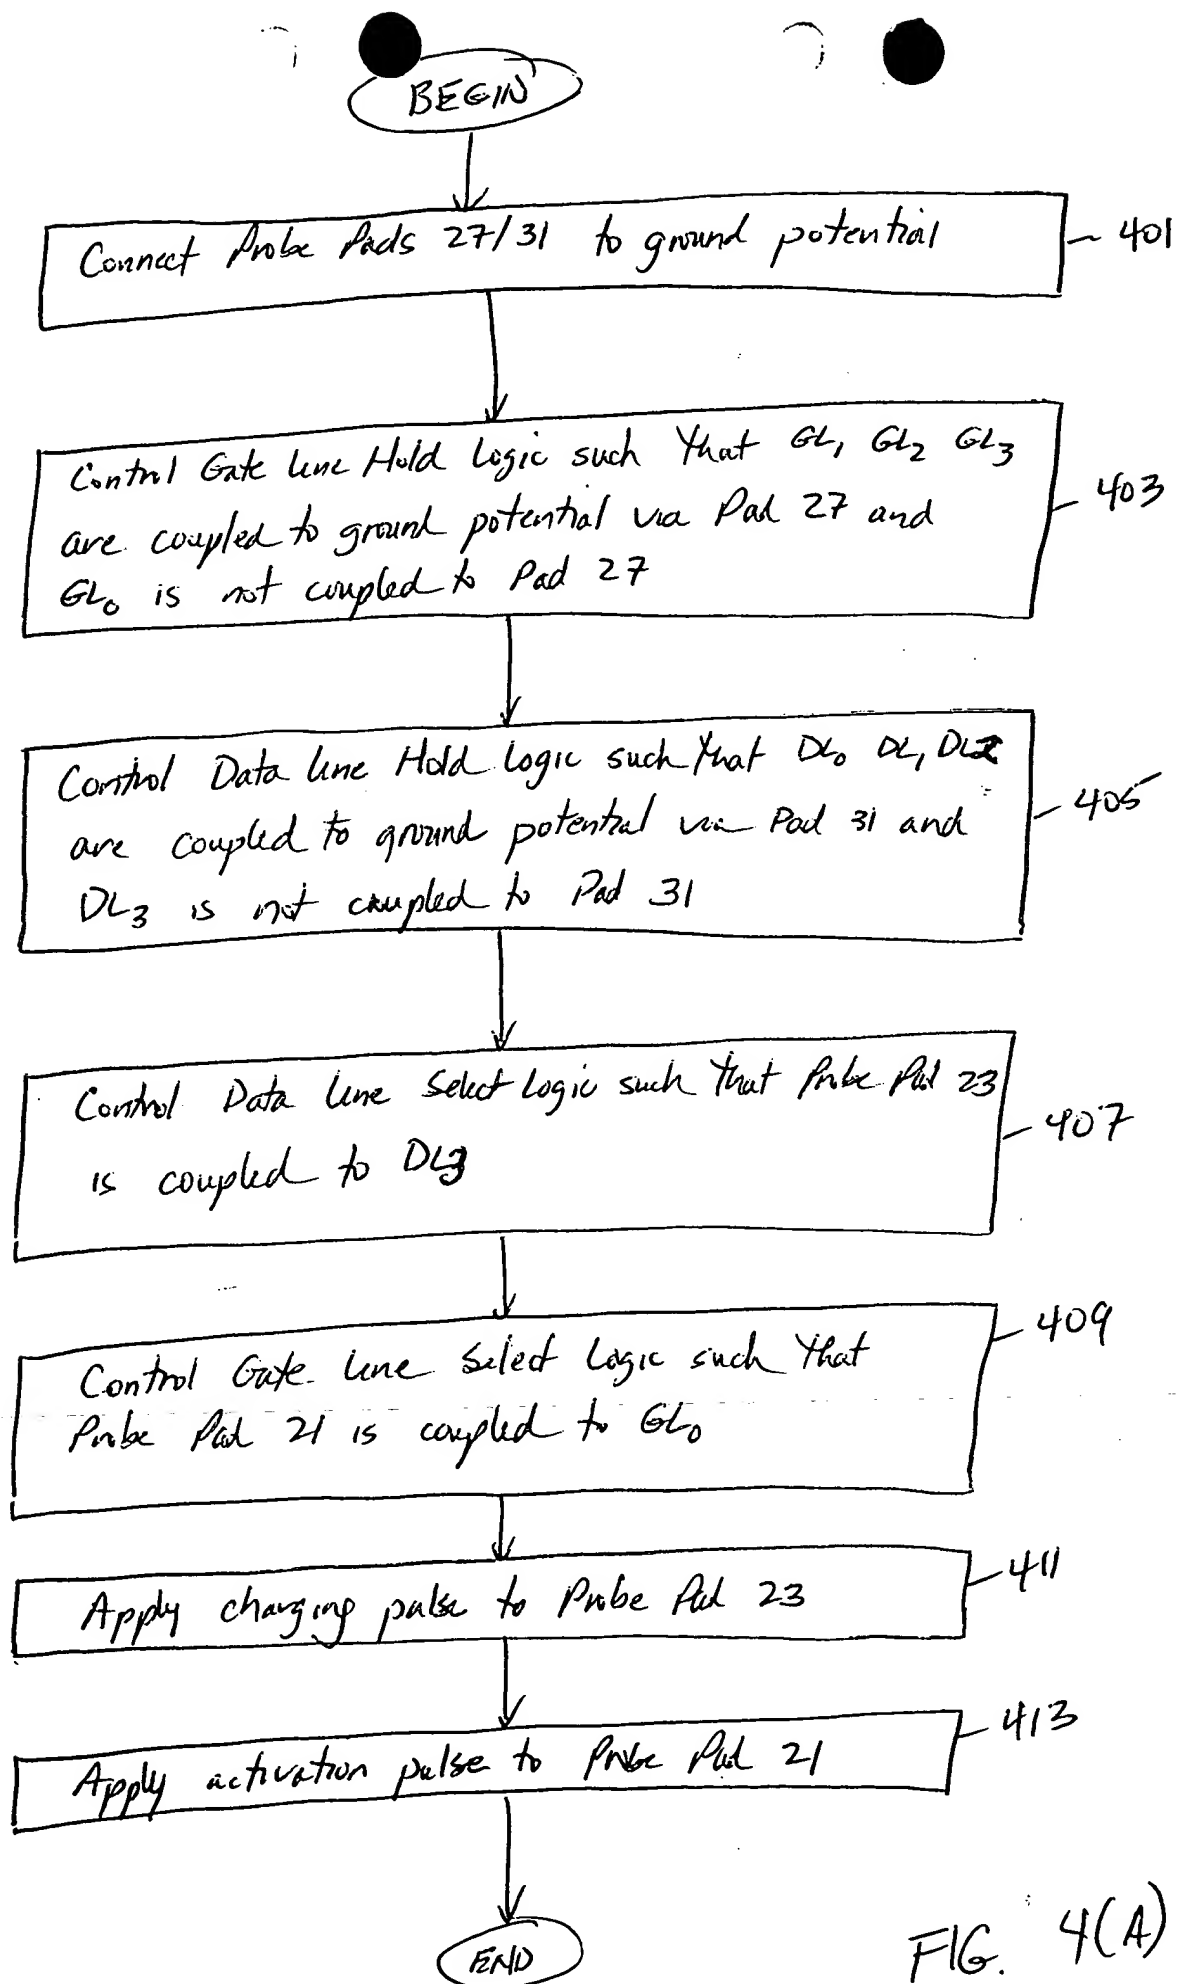 BEGIN
Connect Probe Pads 27/31 to ground potential
401
Control Gate line Hold Logic such that GL1 GL2 GL3
are coupled to ground potential via Pad 27 and
GL0 is not coupled to Pad 27
403
Control Data line Hold Logic such that DL0 DL1 DL2
are coupled to ground potential via Pad 31 and
DL3 is not coupled to Pad 31
405
Control Data line Select Logic such that Probe Pad 23
is coupled to DL3
407
Control Gate line Select Logic such that
Probe Pad 21 is coupled to GL0
409
Apply charging pulse to Probe Pad 23
411
Apply activation pulse to Probe Pad 21
413
END
FIG. 4(A)